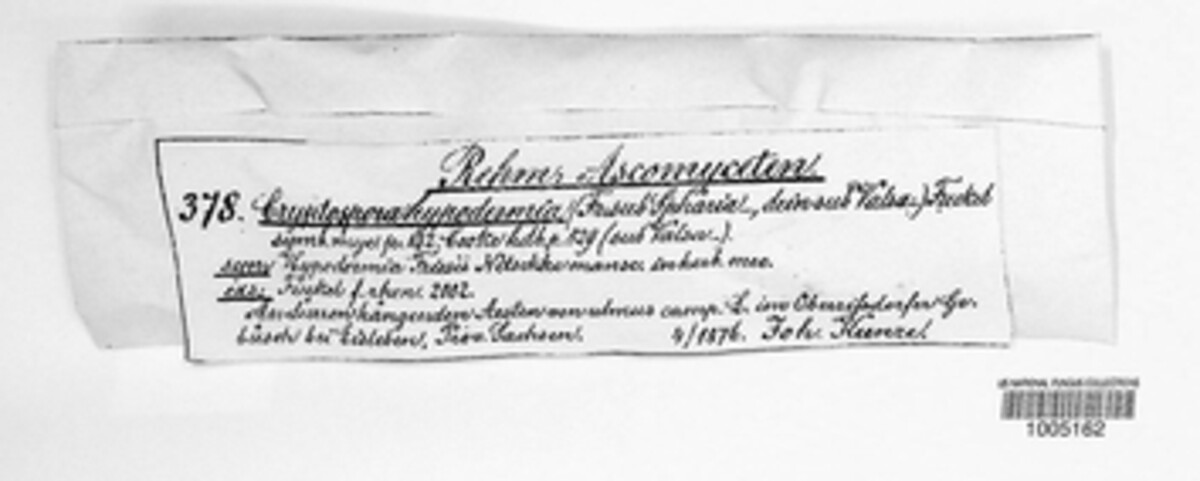 Rehm, Ascomyceten.
378. Cryptospora hypodermia (Fr. sub Sphäria, dein sub Valsa.) Fuckel
symb. myc. p. 192, Cooke hdb. p. 829 (sub Valsa.).
syn. Hypodermia Friesii Nitschke manusc. in herb. meo.
exs.: Fuckel f. rhen. 2002.
An dürren hängenden Aesten von ulmus camp. L. im Oberrissdorfer Ge-
büsch bei Eisleben, Prov. Sachsen. 4/1876. Joh. Kunze.
US NATIONAL FUNGUS COLLECTIONS
1005162